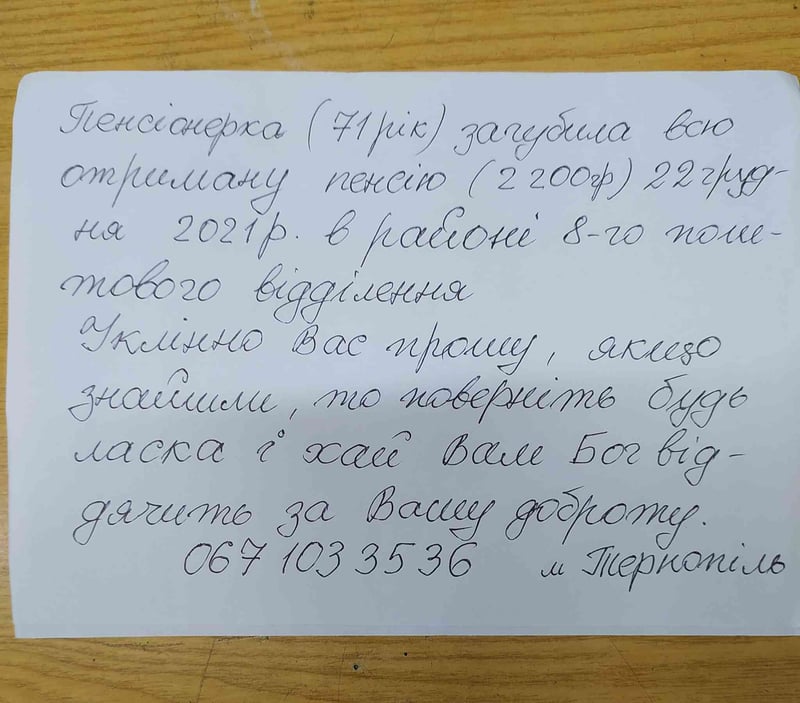 Пенсіонерка (71 рік) загубила всю
отриману пенсію (2 200 гр) 22 груд-
ня 2021 р. в районі 8-го пош-
тового відділення
Уклінно Вас прошу, якщо
знайшли, то поверніть будь
ласка і хай Вам Бог від-
дячить за Вашу доброту.
067 103 35 36 м Тернопіль